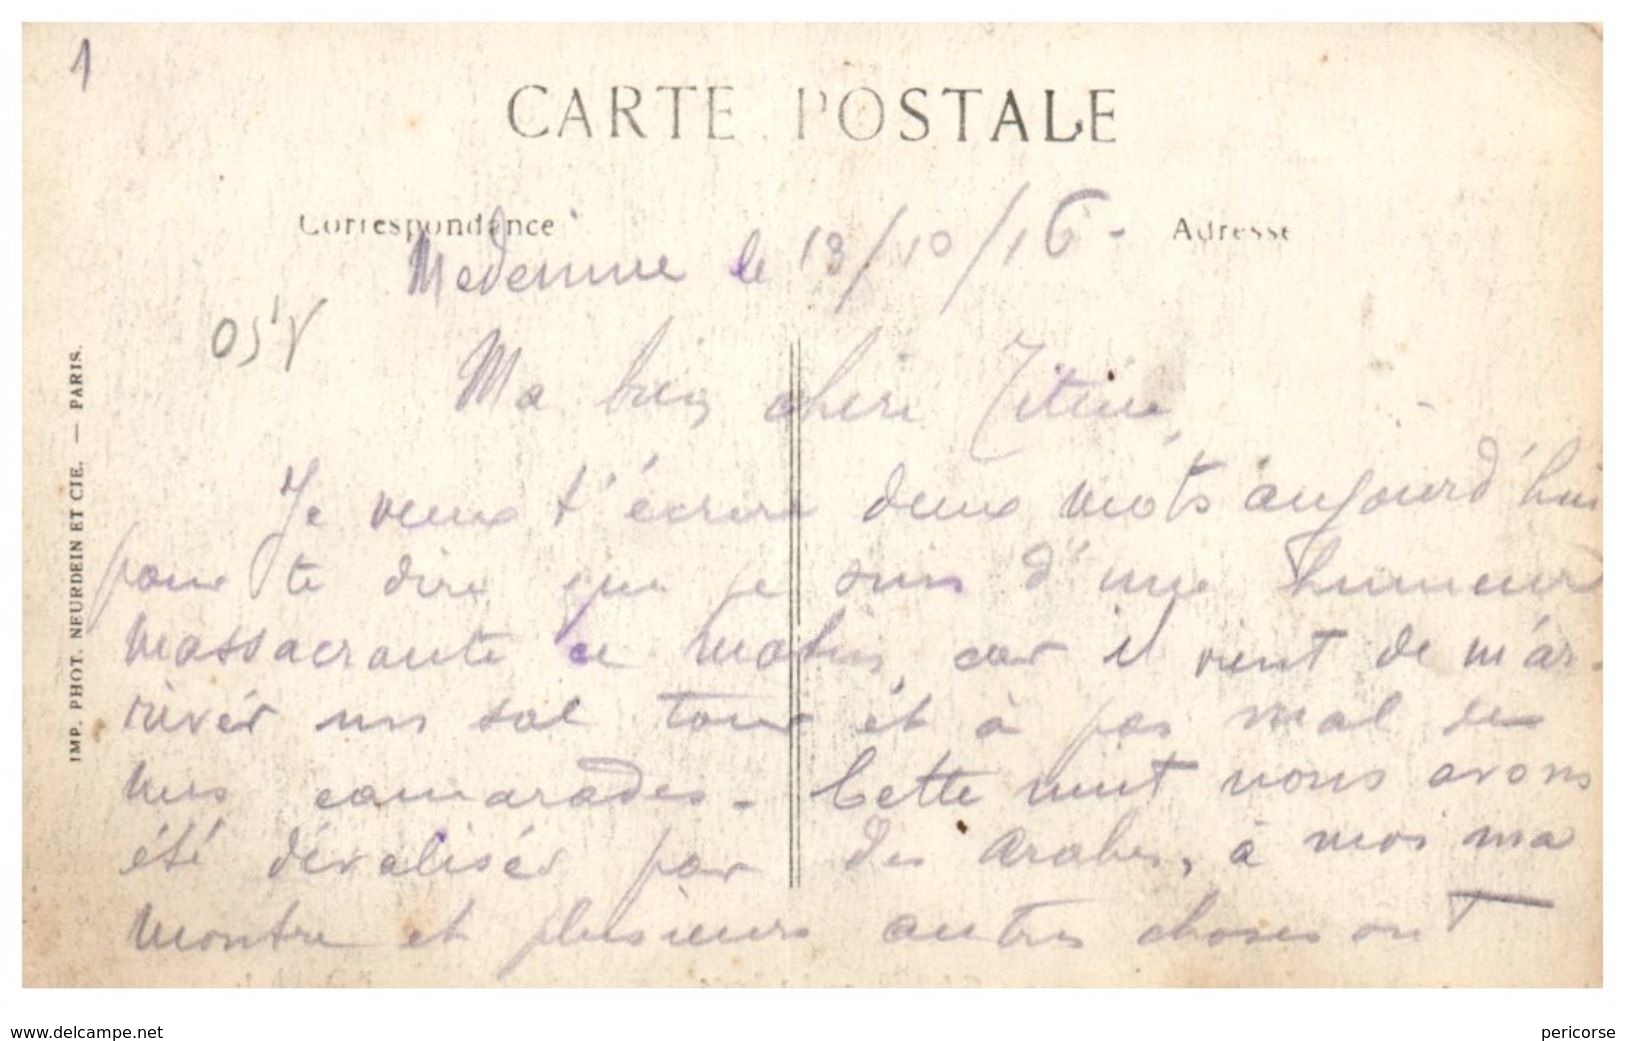 1
CARTE POSTALE
Correspondance
Adresse
Medenine le 13/10/16 -
Ma bien chère Titine,
Je veux t'écrire deux mots aujourd'hui
pour te dire que je suis d'une humeur
massacrante ce matin, car il vient de m'ar-
river un sal tour et à pas mal de
mes camarades. Cette nuit nous avons
été dévalisés par des arabes, à moi ma
montre et plusieurs autres choses ont
IMP. PHOT. NEURDEIN ET CIE. — PARIS.
www.delcampe.net
pericorse